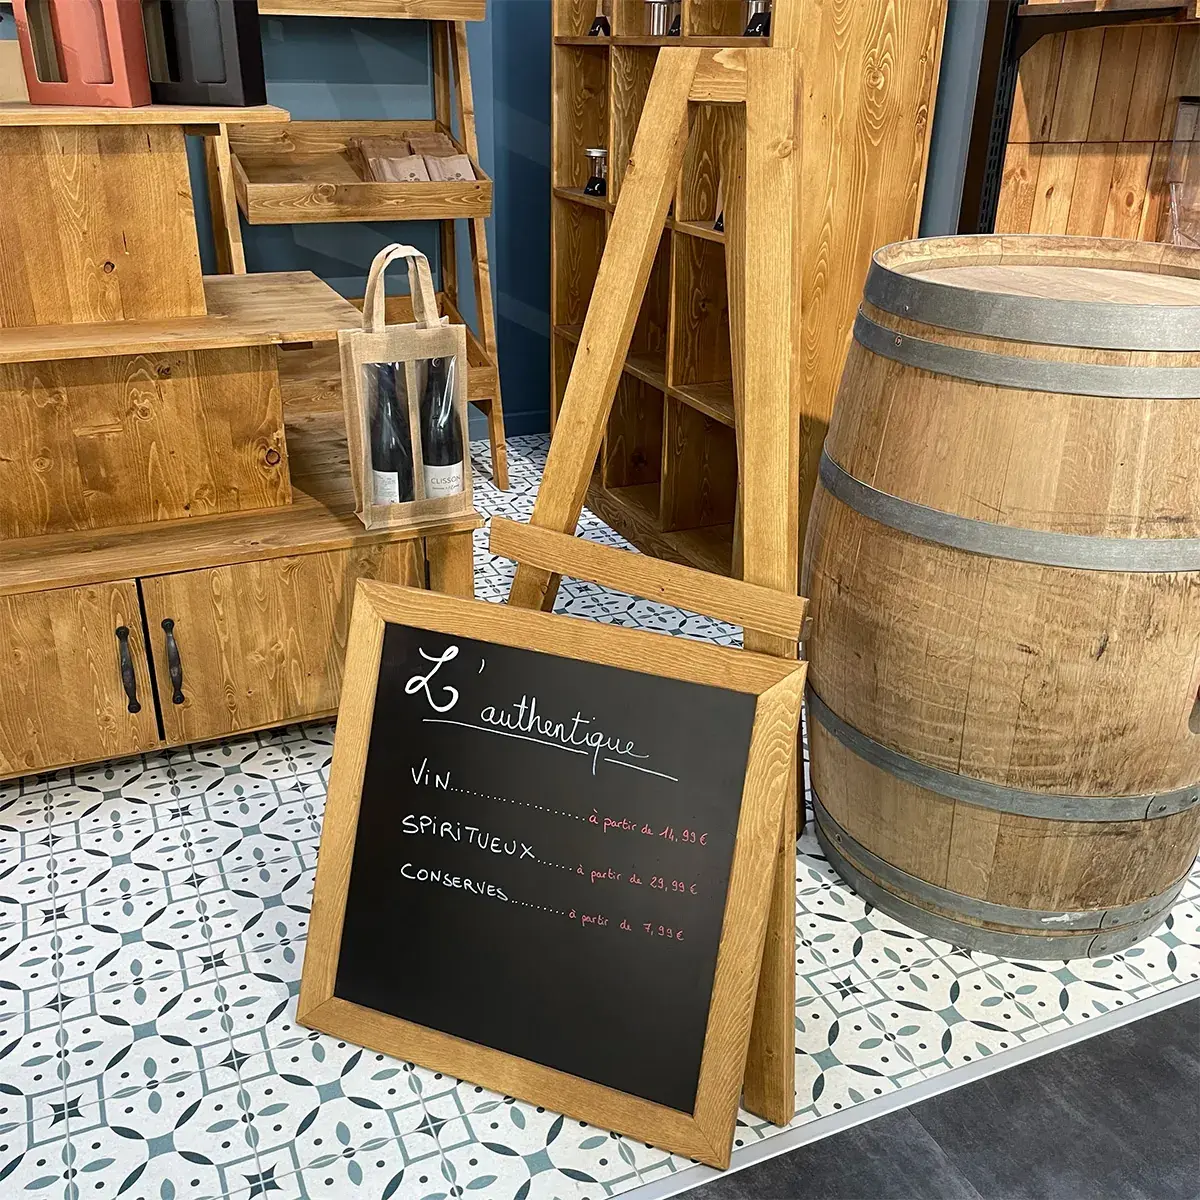 CLISSON
L'authentique
ViN.................à partir de 14,99€
SPiRiTUEUX.......à partir de 29,99€
CONSERVES..........à partir de 7,99€